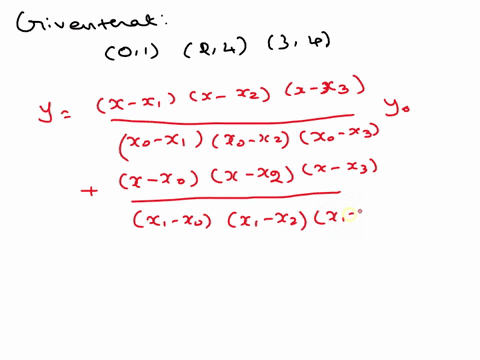 Giventhat:
(0,1) (2,4) (3,4)
y = (x-x₁) (x-x₂) (x-x₃) y₀
(x₀-x₁) (x₀-x₂) (x₀-x₃)
+ (x-x₀) (x-x₂) (x-x₃)
(x₁-x₀) (x₁-x₂) (x₁-